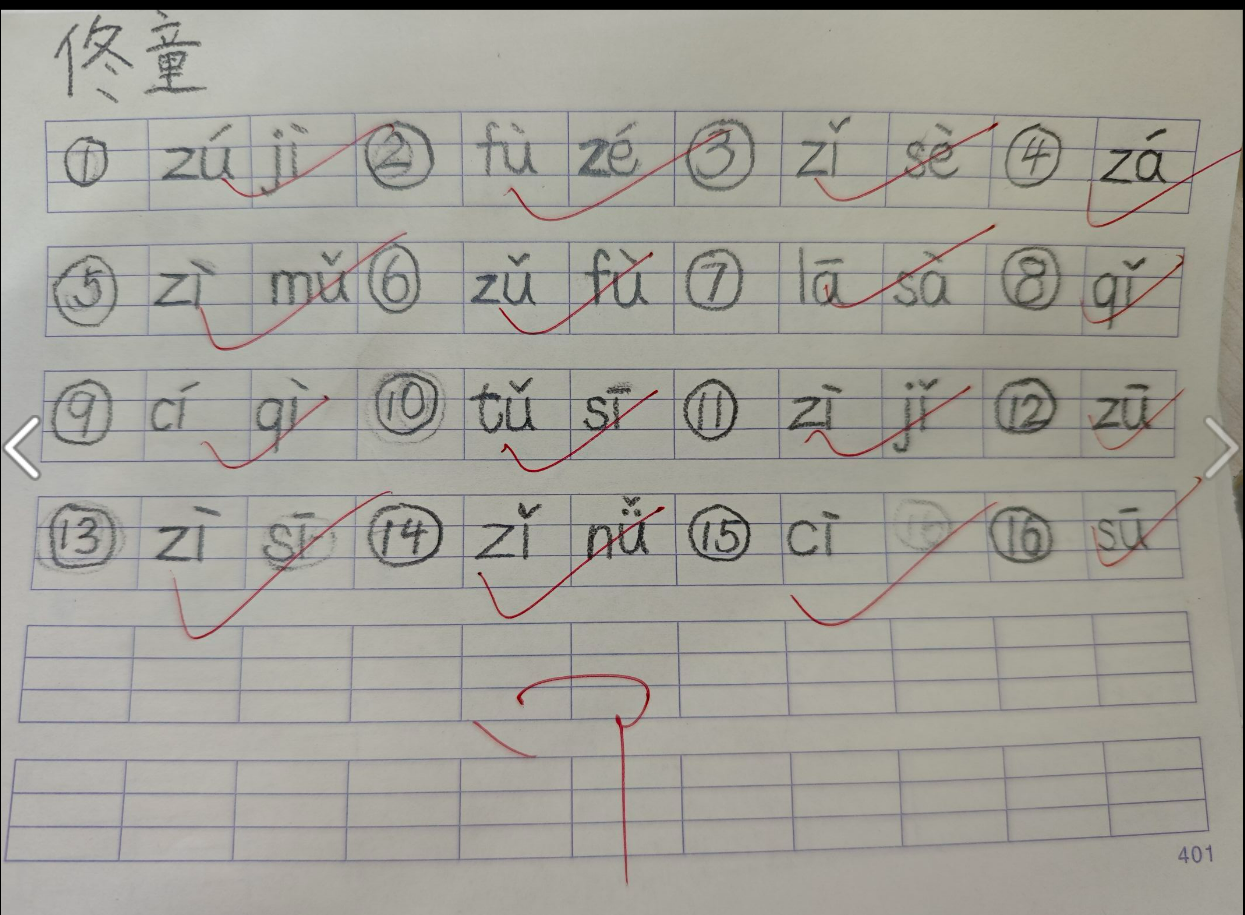 佟童
① zú jì ② fù zé ③ zǐ sè ④ zá
⑤ zì mǔ ⑥ zǔ fù ⑦ lā sà ⑧ qǐ
⑨ cí qì ⑩ tǔ sī ⑪ zì jǐ ⑫ zū
⑬ zì sī ⑭ zǐ nǚ ⑮ cì ⑯ sū
401